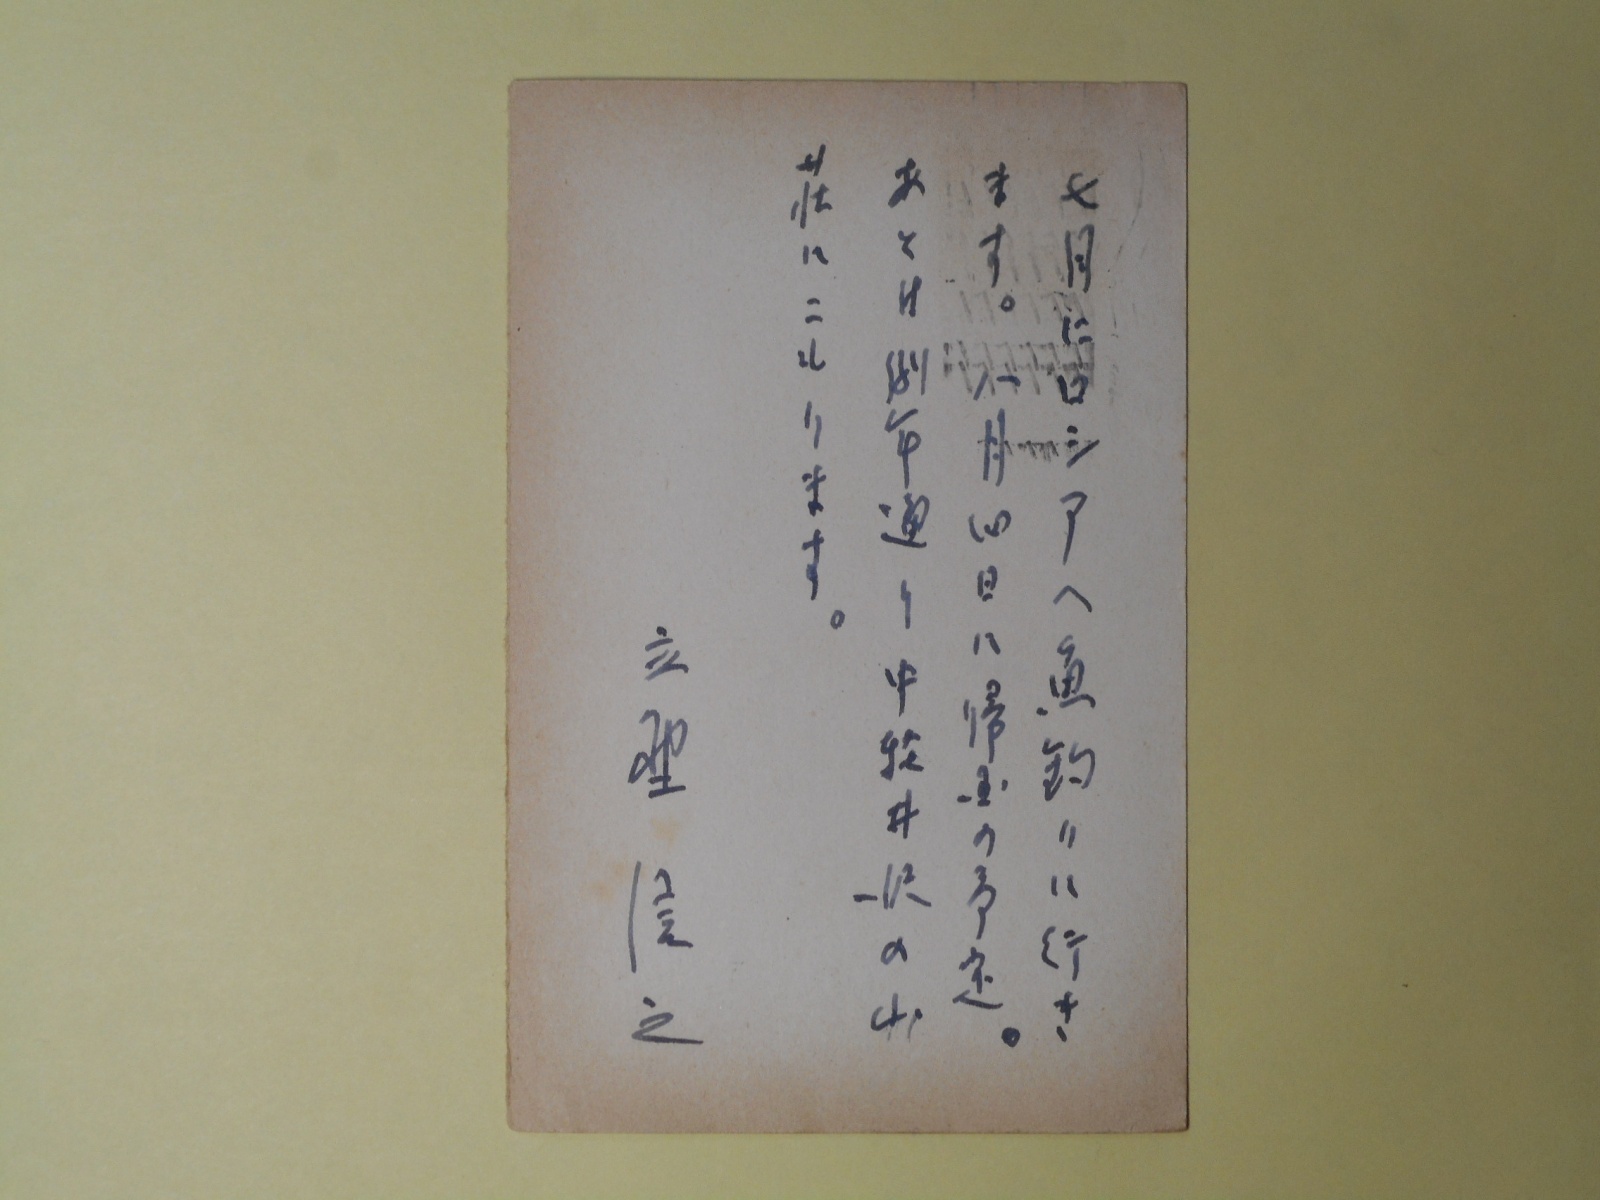 七月にロシアへ魚釣りに行き
ます。八月四日に帰国の予定。
あとは例年通り中軽井沢の山
荘にこもります。
立野信之